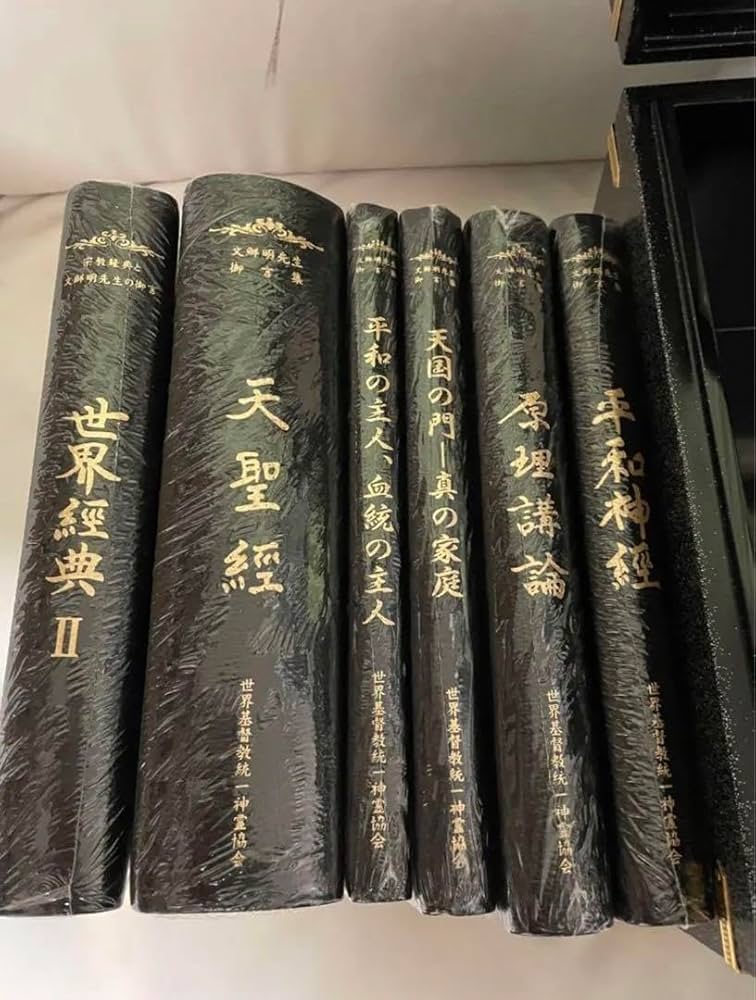 宗教経典と
文鮮明先生の御言
世界經典Ⅱ
文鮮明先生
御言集
天聖經
世界基督教統一神霊協会
御言集
平和の主人、血統の主人
世界基督教統一神霊協会
御言集
天国の門―真の家庭
世界基督教統一神霊協会
文鮮明先生
御言集
原理講論
世界基督教統一神霊協会
文鮮明先生
御言集
平和神經
世界基督教統一神霊協会